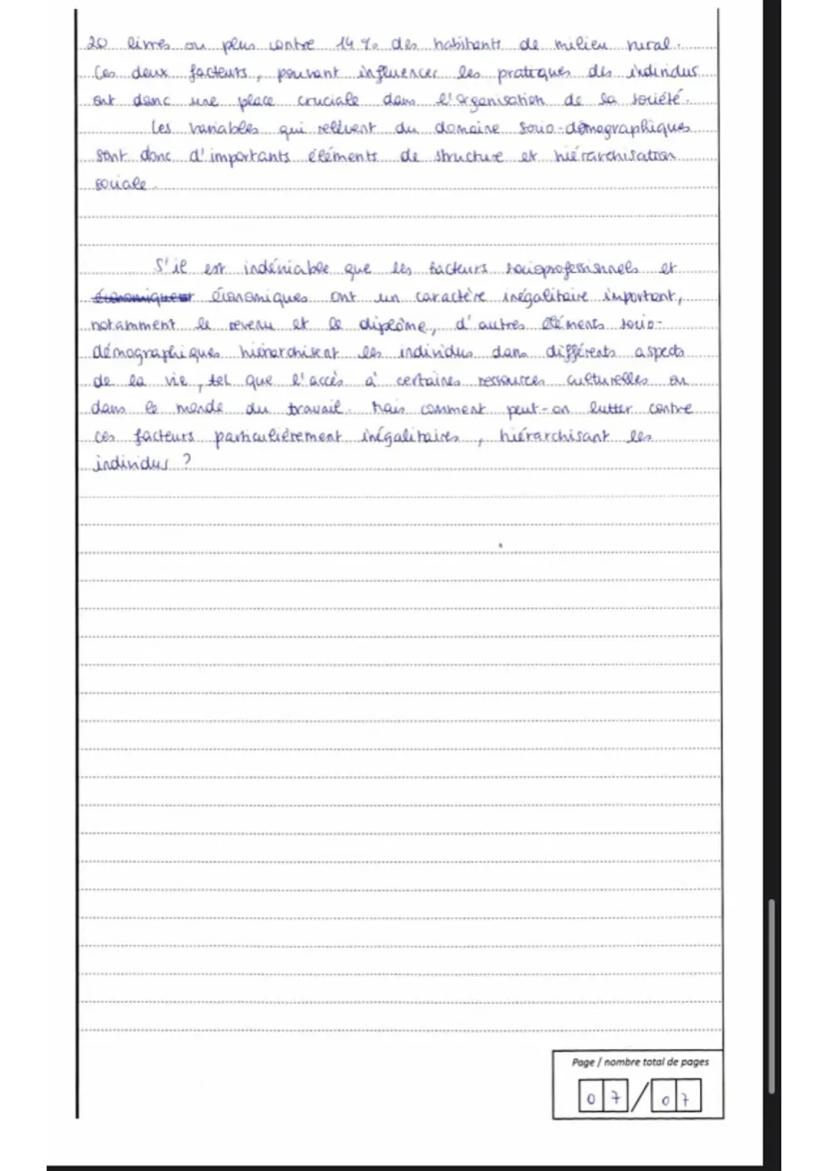 20 livres ou plus contre 14 % des habitants de milieu rural.
Ces deux facteurs, pouvant influencer les pratiques des individus
ont donc une place cruciale dans l'organisation de la société.
Les variables qui relèvent du domaine socio-démographiques
sont donc d'importants éléments de structure et hiérarchisation
sociale.
S'il est indéniable que les facteurs socioprofessionnels et
économiques économiques ont un caractère inégalitaire important,
notamment le revenu et le diplôme, d'autres éléments socio-
démographiques hiérarchisent les individus dans différents aspects
de la vie, tel que l'accès à certaines ressources culturelles ou
dans le monde du travail. Mais comment peut-on lutter contre
ces facteurs particulièrement inégalitaires, hiérarchisant les
individus ?
Page / nombre total de pages
07 / 07